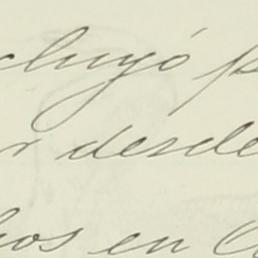 cluyó p
r desde
hos en C